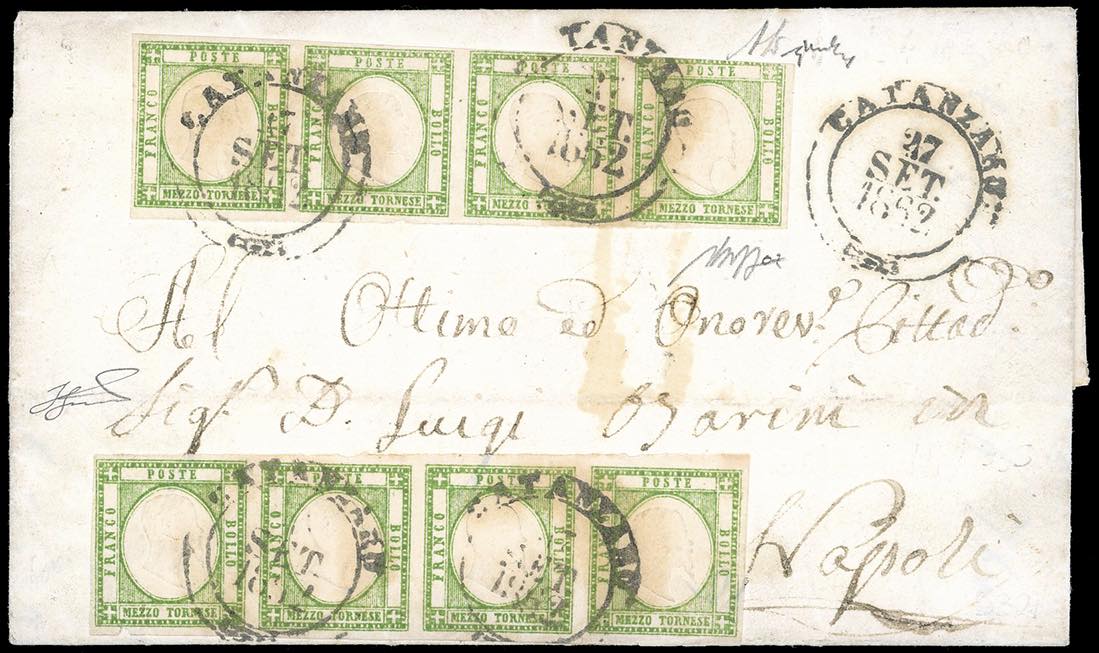 POSTE POSTE POSTE POSTE
FRANCO BOLLO FRANCO BOLLO FRANCO BOLLO FRANCO BOLLO
MEZZO TORNESE MEZZO TORNESE MEZZO TORNESE MEZZO TORNESE
CATANZARO
SET
CATANZARO
SET.
1862
CATANZARO
27
SET.
1862
Al Ottimo ed Onorev. Cittad.
Sig. D. Luigi Barini in
Napoli
POSTE POSTE POSTE POSTE
FRANCO BOLLO FRANCO BOLLO FRANCO BOLLO FRANCO BOLLO
MEZZO TORNESE MEZZO TORNESE MEZZO TORNESE MEZZO TORNESE
CATANZARO
SET.
1862
CATANZARO
1862